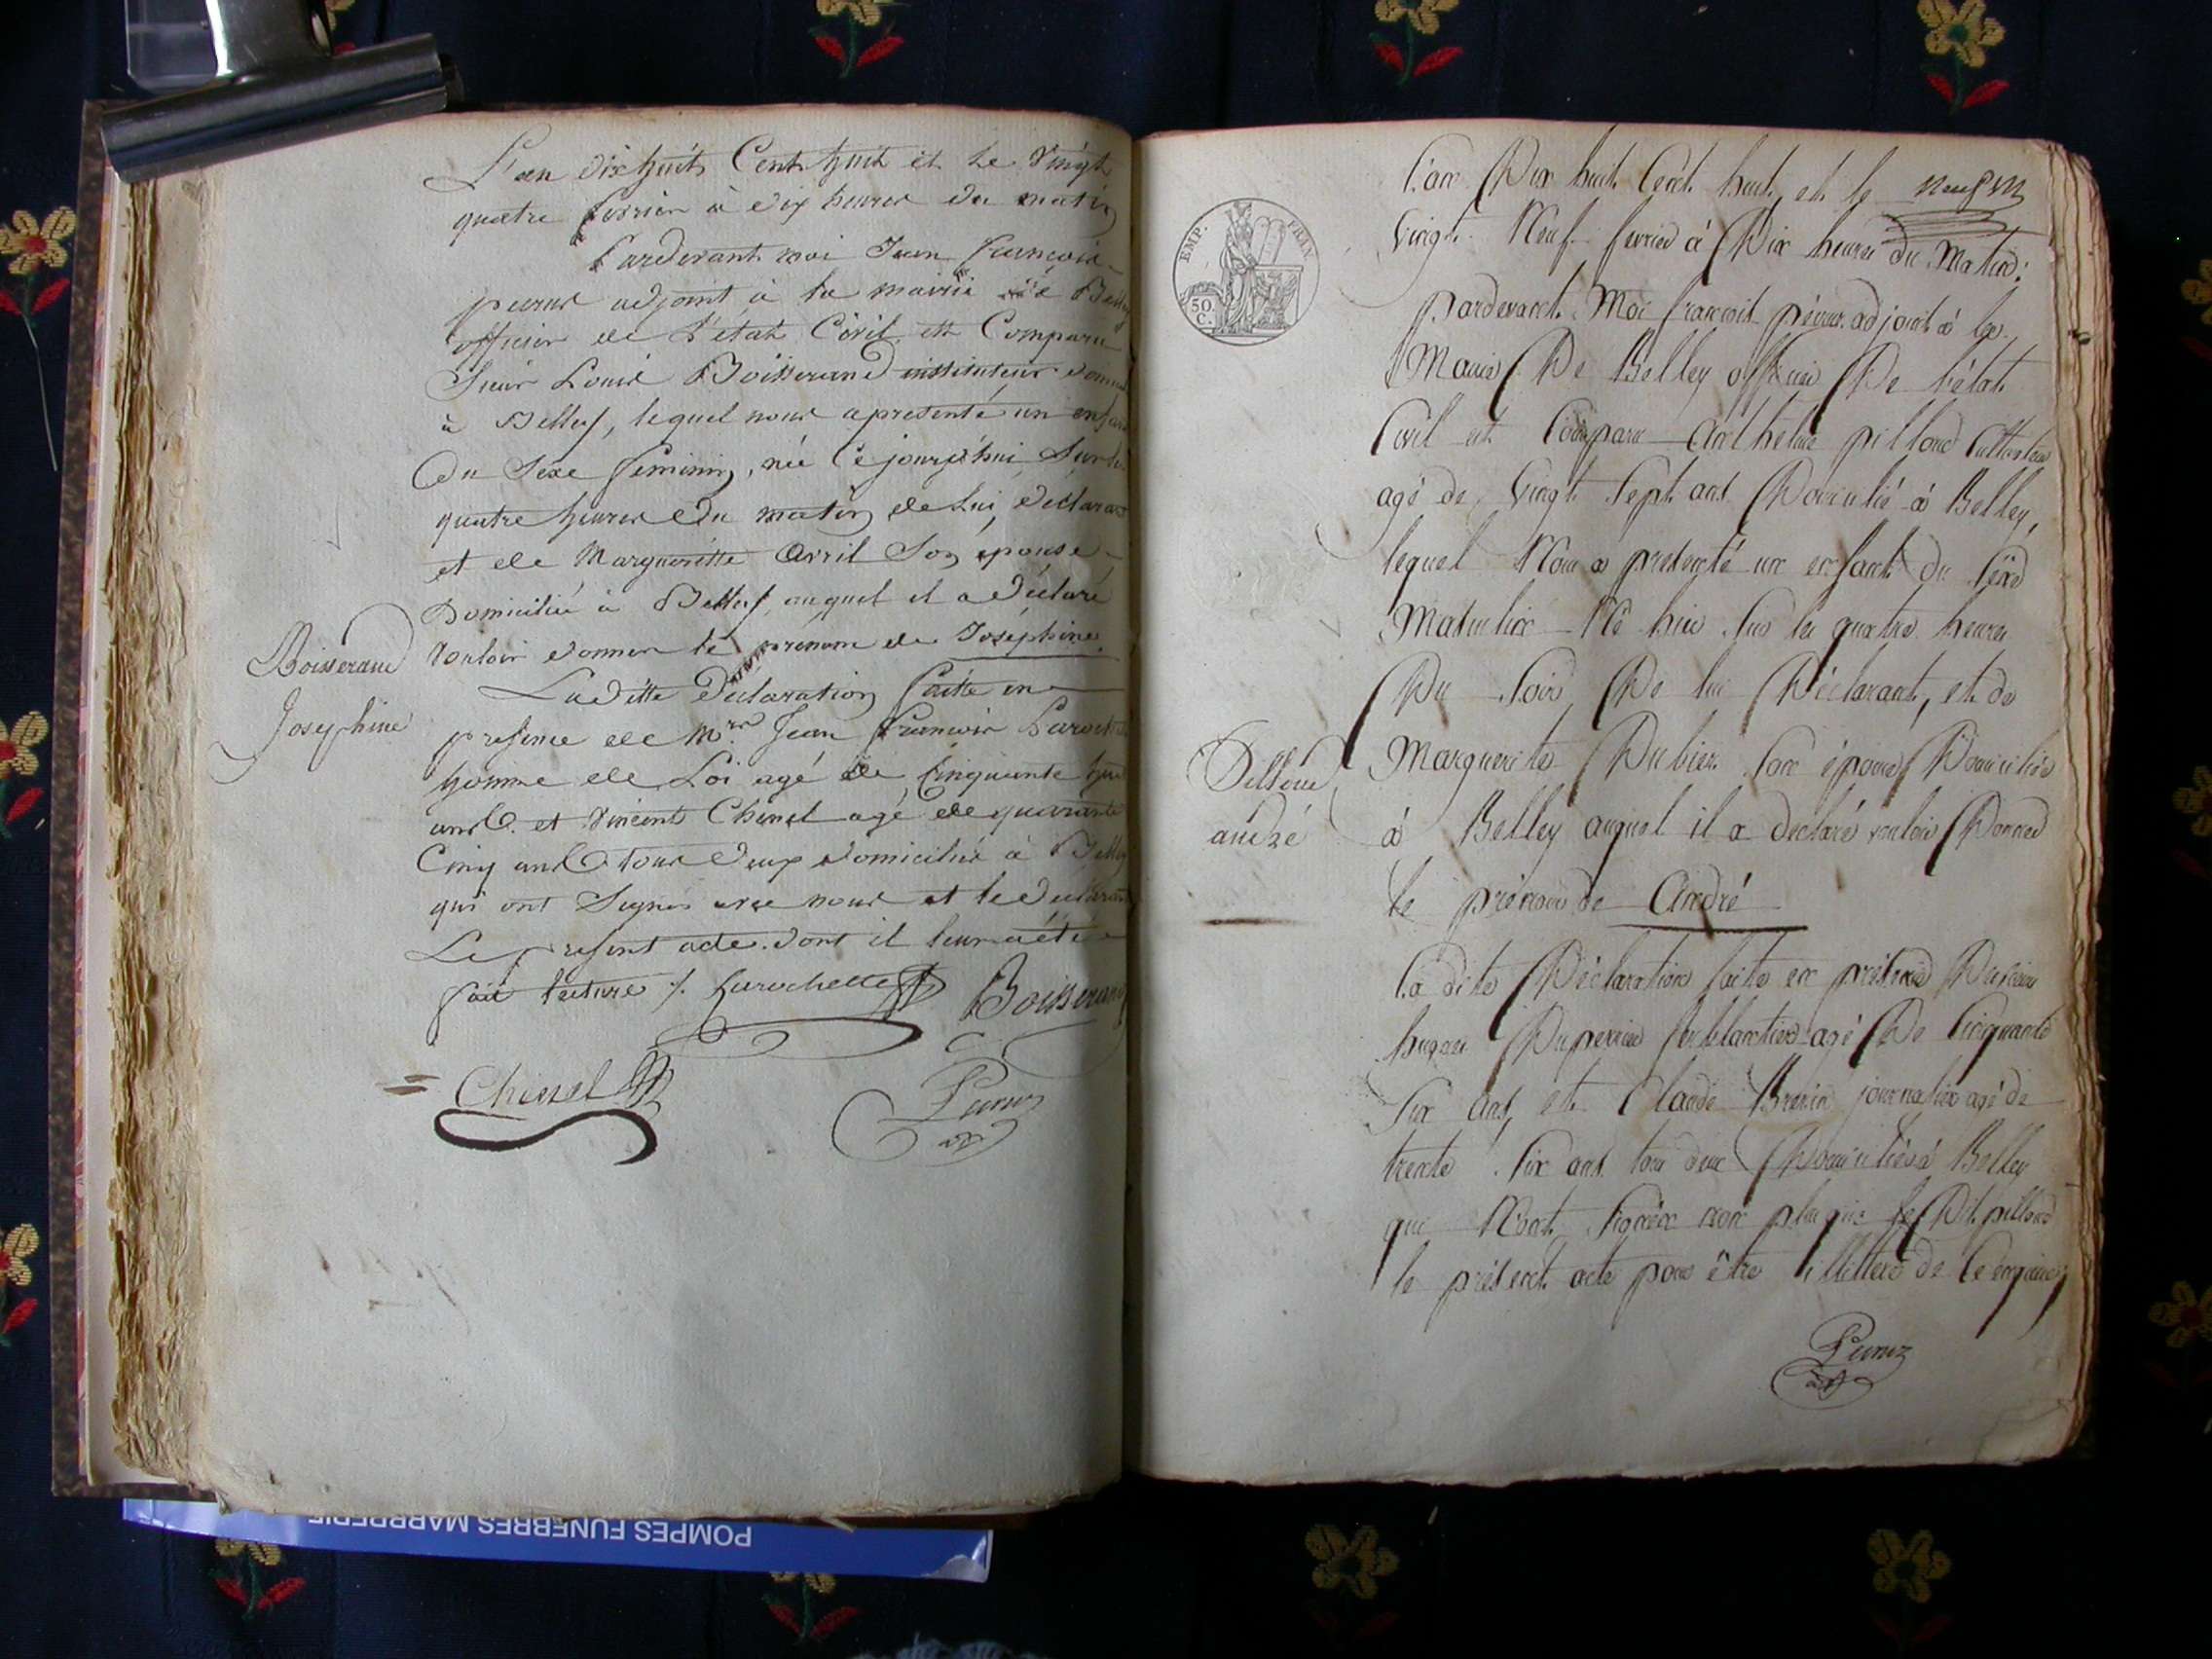 L'an dix huit Cent huit et le vingt
quatre fevrier à dix heures du matin
Pardevant moi Jean françois
adjoint à la mairie de Belley
officier de l'état Civil est Comparu
Sieur Louis Boisserand instituteur
à Belley, lequel nous a presenté un enfant
du Sexe feminin, née Cejourd'hui Sur les
quatre heures du matin de lui déclarant
et de Margueritte Avril Son épouse
Domiciliée à Belley, auquel il a déclaré
vouloir donner le prenom de Joséphine
Boisserand
Josephine
Laditte déclaration faitte en
presence de Mre Jean francois Larochette
homme de Loi agé de Cinquante huit
ans et Vincent Chenel agé de quarante
Cinq ans tous deux domiciliés à Belley
qui ont Signés avec nous et le declarant
Le present acte dont il leur a été
fait lecture ./. Larochette Boisserand
Chenel
EMP. FRAN.
50.
C.
L'an Dix huit Cent huit, et le
vingt Neuf fevrier à Dix heures du Matin;
pardevant Moi francois adjoint à la
Mairie De Belley officier De l'état
Civil est Comparu Anthelme pilloud
agé de Vingt Sept ans Domicilié à Belley,
lequel Nous a presenté un enfant du Sexe
Masculin Né hier Sur les quatre heures
Du Soir De lui Déclarant, et de
Marguerite Dubier Son épouse Domiciliée
à Belley auquel il a declaré vouloir Donner
le prénom de André
Pilloud
andré
La dite Déclaration faite en présence De
hugues Duperrier ferblantier agé De Cinquante
Six ans, et Claude journalier agé de
trente Six ans tous deux Domiciliés à Belley
qui N'ont Signé non plus que le Dit pilloud
le présent acte pour être illitteré de Ce enquis;
POMPES FUNEBRES MARBRERIE